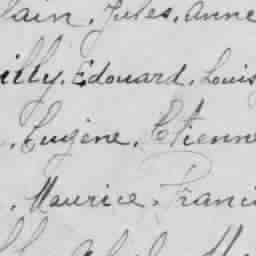 lain, Jules, Anne
illy, Edouard, Louis
, Eugène, Etienne
, Maurice, Franci